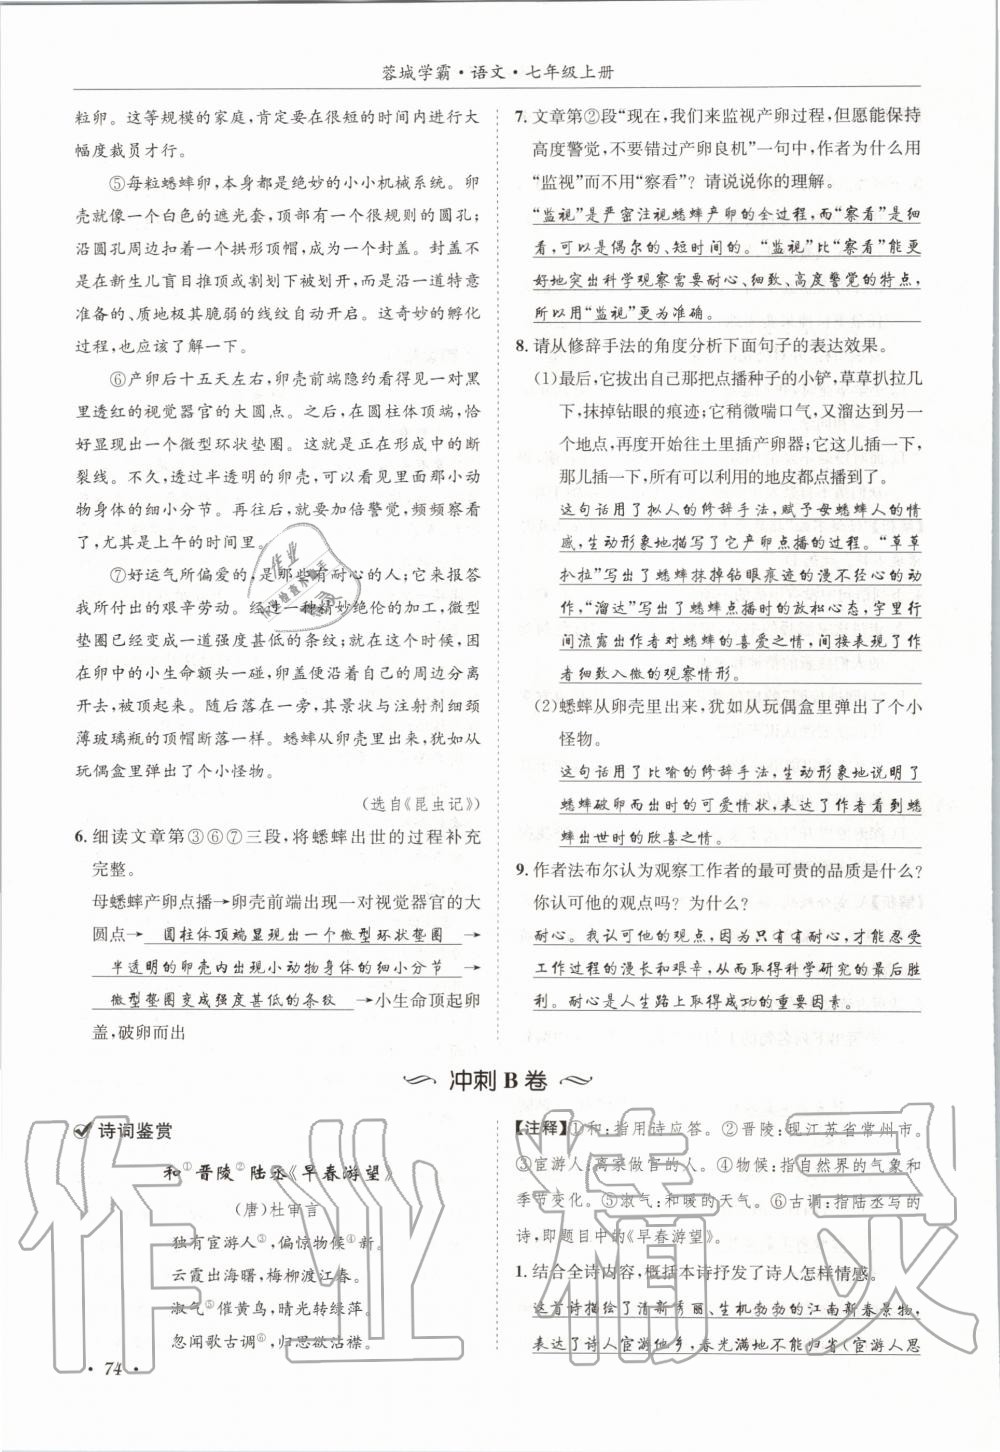 蓉城学霸·语文·七年级上册
粒卵。这等规模的家庭,肯定要在很短的时间内进行大
幅度裁员才行。
⑤每粒蟋蟀卵,本身都是绝妙的小小机械系统。卵
壳就像一个白色的遮光套,顶部有一个很规则的圆孔;
沿圆孔周边扣着一个拱形顶帽,成为一个封盖。封盖不
是在新生儿盲目推顶或割划下被划开,而是沿一道特意
准备的、质地极其脆弱的线纹自动开启。这奇妙的孵化
过程,也应该了解一下。
⑥产卵后十五天左右,卵壳前端隐约看得见一对黑
里透红的视觉器官的大圆点。之后,在圆柱体顶端,恰
好显现出一个微型环状垫圈。这就是正在形成中的断
裂线。不久,透过半透明的卵壳,能看见里面那小动
物身体的细小分节。再往后,就要加倍警觉,频频察看
了,尤其是上午的时间里。
⑦好运气所偏爱的,是那些有耐心的人;它来报答
我所付出的艰辛劳动。经过一种精妙绝伦的加工,微型
垫圈已经变成一道强度甚低的条纹;就在这个时候,困
在卵中的小生命额头一碰,卵盖便沿着自己的周边分离
开去,被顶起来。随后落在一旁,其景状与注射剂细颈
薄玻璃瓶的顶帽断落一样。蟋蟀从卵壳里出来,犹如从
玩偶盒里弹出了个小怪物。
(选自《昆虫记》)
6. 细读文章第③⑥⑦三段,将蟋蟀出世的过程补充
完整。
母蟋蟀产卵点播→卵壳前端出现一对视觉器官的大
圆点→ 圆柱体顶端显现出一个微型环状垫圈 →
半透明的卵壳内出现小动物身体的细小分节 →
微型垫圈变成强度甚低的条纹 →小生命顶起卵
盖,破卵而出
7. 文章第②段“现在,我们来监视产卵过程,但愿能保持
高度警觉,不要错过产卵良机”一句中,作者为什么用
“监视”而不用“察看”?请说说你的理解。
“监视”是严密注视蟋蟀产卵的全过程,而“察看”是细
看,可以是偶尔的、短时间的。“监视”比“察看”能更
好地突出科学观察需要耐心、细致、高度警觉的特点,
所以用“监视”更为准确。
8. 请从修辞手法的角度分析下面句子的表达效果。
(1)最后,它拔出自己那把点播种子的小铲,草草扒拉几
下,抹掉钻眼的痕迹;它稍微喘口气,又溜达到另一
个地点,再度开始往土里插产卵器;它这儿插一下,
那儿插一下,所有可以利用的地皮都点播到了。
这句话用了拟人的修辞手法,赋予母蟋蟀人的情
感,生动形象地描写了它产卵点播的过程。“草草
扒拉”写出了蟋蟀抹掉钻眼痕迹的漫不经心的动
作,“溜达”写出了蟋蟀点播时的放松心态,字里行
间流露出作者对蟋蟀的喜爱之情,间接表现了作
者细致入微的观察情形。
(2)蟋蟀从卵壳里出来,犹如从玩偶盒里弹出了个小
怪物。
这句话用了比喻的修辞手法,生动形象地说明了
蟋蟀破卵而出时的可爱情状,表达了作者看到蟋
蟀出世时的欣喜之情。
9. 作者法布尔认为观察工作者的最可贵的品质是什么?
你认可他的观点吗?为什么?
耐心。我认可他的观点,因为只有有耐心,才能忍受
工作过程的漫长和艰辛,从而取得科学研究的最后胜
利。耐心是人生路上取得成功的重要因素。
冲刺B卷
诗词鉴赏
和①晋陵②陆丞《早春游望》
(唐)杜审言
独有宦游人③,偏惊物候④新。
云霞出海曙,梅柳渡江春。
淑气⑤催黄鸟,晴光转绿萍。
忽闻歌古调⑥,归思欲沾襟。
【注释】①和:指用诗应答。②晋陵:现江苏省常州市。
③宦游人:离家做官的人。④物候:指自然界的气象和
季节变化。⑤淑气:和暖的天气。⑥古调:指陆丞写的
诗,即题目中的《早春游望》。
1. 结合全诗内容,概括本诗抒发了诗人怎样情感。
这首诗描绘了清新秀丽、生机勃勃的江南新春景物,
表达了诗人宦游他乡,春光满地不能归省(宦游人思
·74·
作业精灵